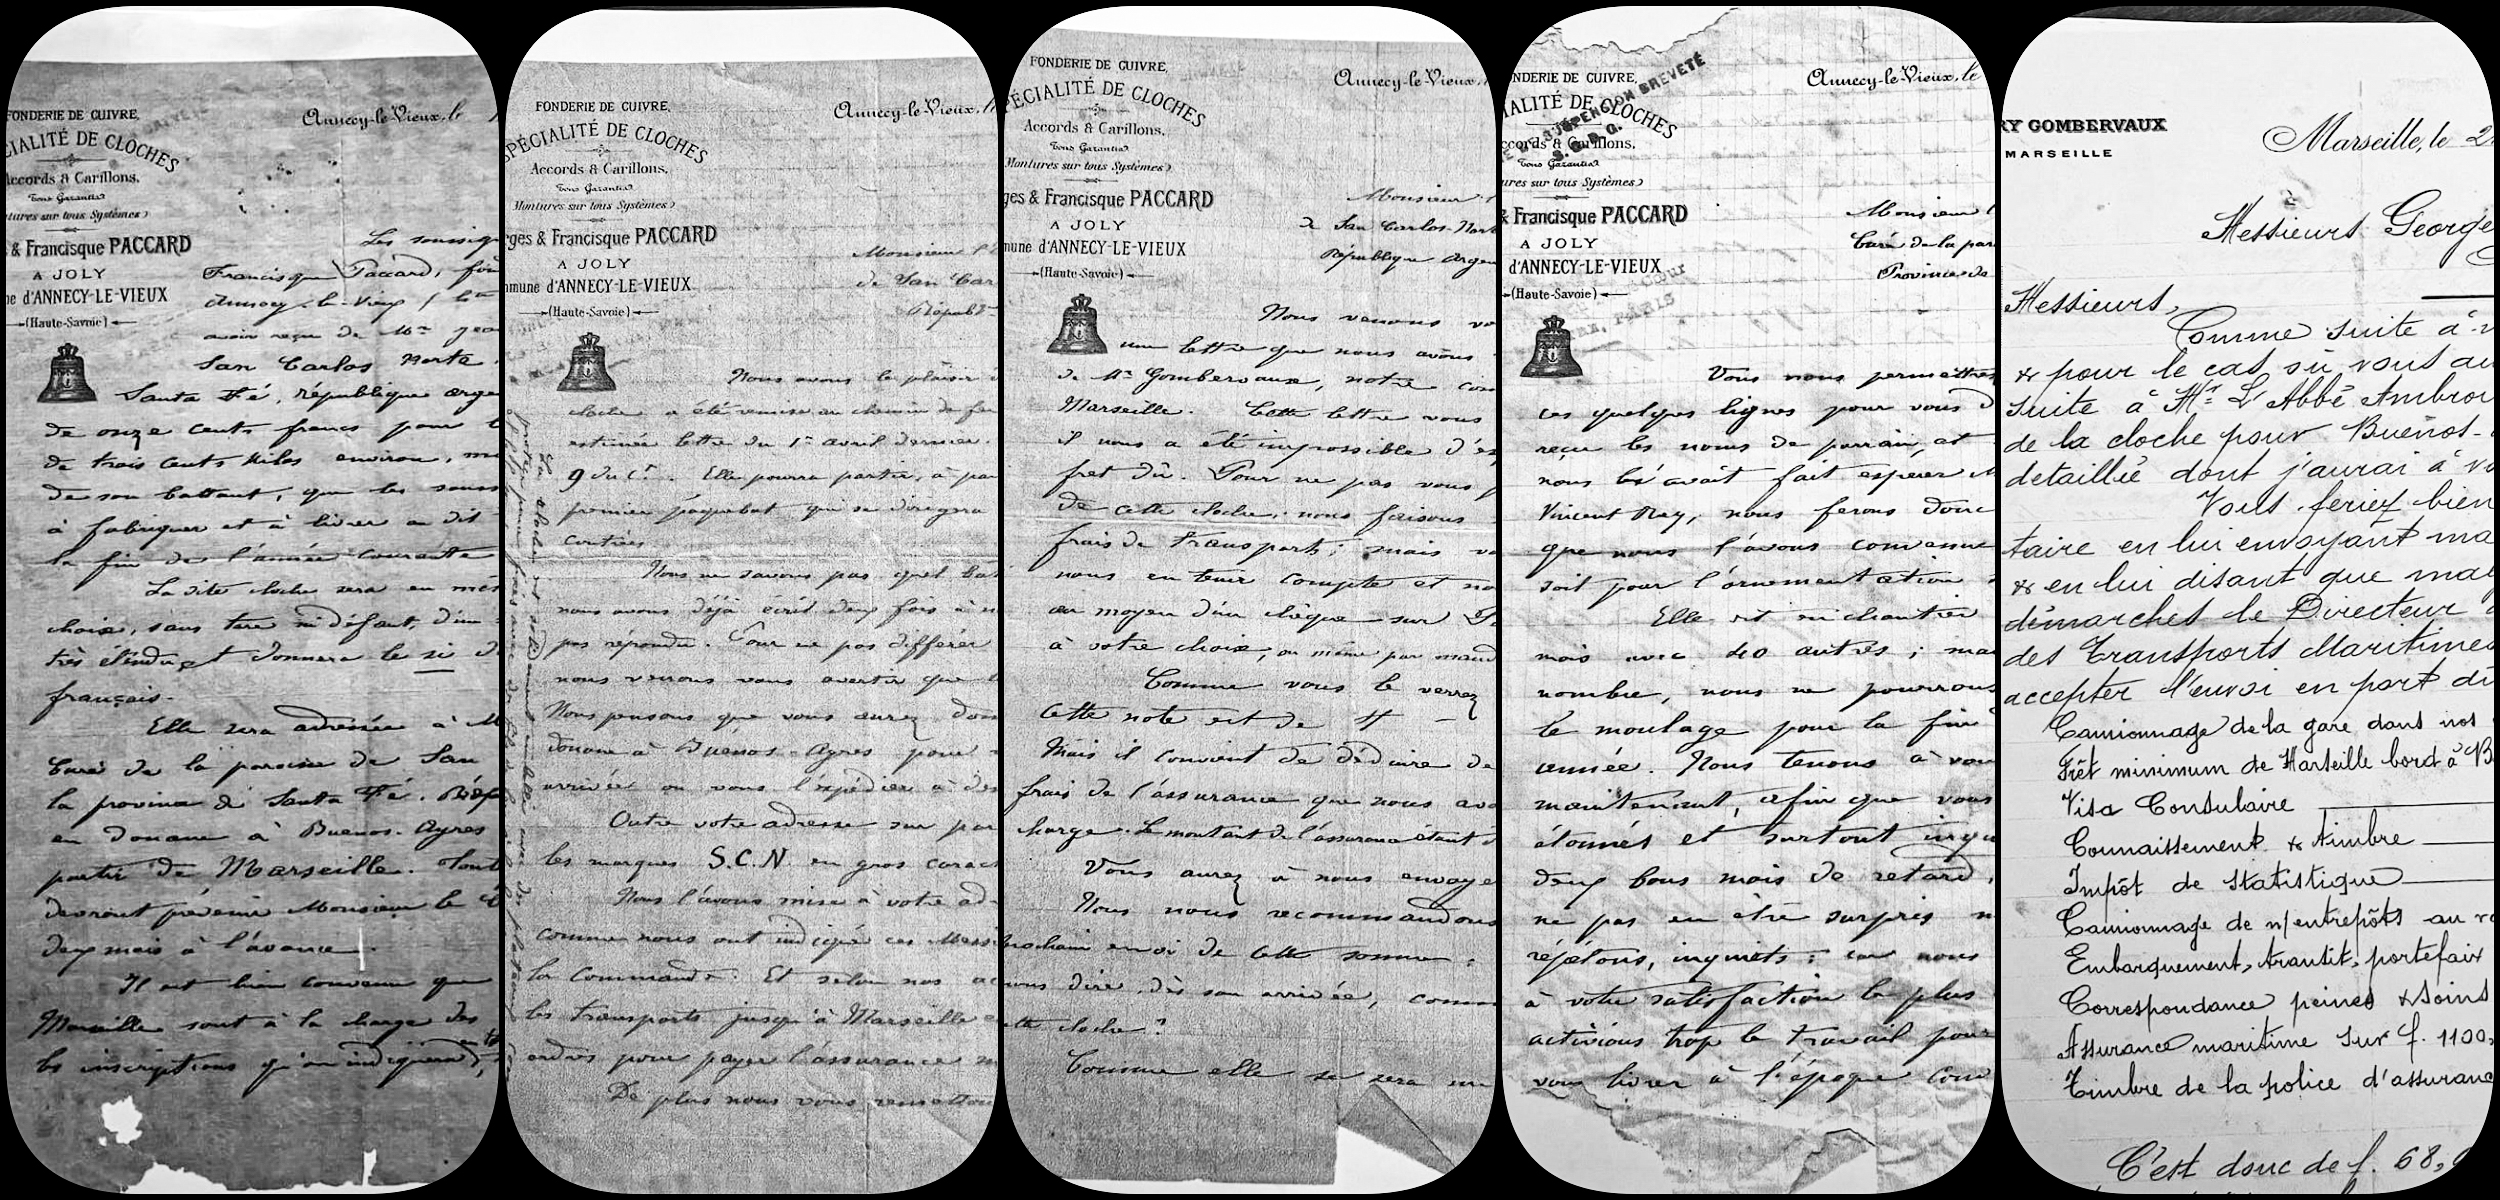 FONDERIE DE CUIVRE,
CIALITÉ DE CLOCHES
Accords & Carillons.
Tons Garantis
tures sur tous Systèmes
& Francisque PACCARD
A JOLY
ne d'ANNECY-LE-VIEUX
(Haute-Savoie)
Annecy-le-Vieux, le
Les soussig
Francisque Paccard, fon
Annecy-le-Vieux (
avoir reçu de Mr Jea
San Carlos Norte
Santa Fé, république arge
de onze cents francs pour
de trois cents kilos environ, mu
de son battant, que les sous
à fabriquer et à livrer au dit
la fin de l'année courante
La dite cloche sera en mét
choix, sans tare ni défaut, d'un
très étendu et donnera le si d
français.
Elle sera adressée à M
Curé de la paroisse de San
la province de Santa Fé. Rép
en douane à Buenos-Ayres
partir de Marseille.
devront prévenir Monsieur le C
deux mois à l'avance.
Il est bien convenu que
Marseille sont à la charge des
les inscriptions qu'on indiquera
FONDERIE DE CUIVRE,
SPÉCIALITÉ DE CLOCHES
Accords & Carillons,
Tons Garantis
Montures sur tous Systèmes
ges & Francisque PACCARD
A JOLY
mmune d'ANNECY-LE-VIEUX
(Haute-Savoie)
Annecy-le-Vieux, l
Monsieur l'
de San Car
Républ
Nous avons le plaisir d
cloche a été remise au chemin de fe
estimée lettre du 1er avril dernier.
9 du Ct. Elle pourra partir, à pa
premier paquebot qui se dirigera
contrées
Nous ne savons pas quel bat
nous avons déjà écrit deux fois à M
pas répondu. Pour ne pas différer
nous venons vous avertir que
Nous pensons que vous aurez don
douane à Buenos-Ayres pour
arrivée ou vous l'expédier à des
Outre votre adresse sur
les marques S.C.N. en gros caract
Nous l'avons mise à votre ad
comme nous ont indiqué ces Messi
la commande. Et selon nos ac
les transports jusqu'à Marseille e
ordres pour payer l'assurance m
De plus nous vous remettons
FONDERIE DE CUIVRE,
PÉCIALITÉ DE CLOCHES
Accords & Carillons,
Tons Garantis
Montures sur tous Systèmes
ges & Francisque PACCARD
A JOLY
mune d'ANNECY-LE-VIEUX
(Haute-Savoie)
Annecy-le-Vieux, l
Monsieur
de San Carlos-Nort
République Argen
Nous venons vo
une lettre que nous avons
de Mr Gombervaux, notre com
Marseille. Cette lettre vous
il nous a été impossible d'ex
fret dû. Pour ne pas vous p
de cette cloche, nous faisons
frais de transport; mais vo
nous en tenir compte et no
au moyen d'un chèque sur
à votre choix, ou même par mand
Comme vous le verrez
cette note est de
Mais il convient de déduire de
frais de l'assurance que nous avo
charge. Le montant de l'assurance étant d
Vous aurez à nous envoye
Nous nous recommandons
prochain envoi de cette somme :
nous dire, dès son arrivée, comm
cette cloche ?
Comme elle se sera
NDERIE DE CUIVRE,
IALITÉ DE CLOCHES
ccords & Carillons,
Tons Garantis
ures sur tous Systèmes
& Francisque PACCARD
A JOLY
d'ANNECY-LE-VIEUX
(Haute-Savoie)
SUSPENSION BREVETÉ
S. G. D. G.
PARIS
Annecy-le-Vieux, le
Monsieur l
Curé de la par
Province de
Vous nous permettrez
ces quelques lignes pour vous d
reçu les noms de parrain et
nous l'avait fait espérer M
Vincent Rey, nous ferons donc
que nous l'avons convenu
soit pour l'ornementation
Elle est en chantier
mois avec 40 autres ; ma
nombre, nous ne pourrons
le moulage pour la fin
année. Nous tenons à vou
maintenant, afin que vous
étonnés et surtout inqu
deux bons mois de retard,
ne pas en être surpris n
répétons, inquiets ; car nous
à votre satisfaction la plus
activions trop le travail pour
vous livrer à l'époque conv
RY GOMBERVAUX
MARSEILLE
Marseille, le 2
Messieurs George
Messieurs,
Comme suite à v
& pour le cas où vous au
suite à Mr L'Abbé Ambroi
de la cloche pour Buenos-
détaillée dont j'aurai à vo
Vous feriez bien
taire en lui envoyant ma
& en lui disant que mal
démarches le Directeur d
des Transports Maritimes
accepter l'envoi en port dû
Camionnage de la gare dans nos
Frêt minimum de Marseille bord à B
Visa Consulaire
Connaissement & timbre
Impôt de Statistique
Camionnage de n/entrepôts au
Embarquement, transit, portefaix
Correspondance peines & soins
Assurance maritime sur f. 1100,
Timbre de la police d'assuranc
C'est donc de f. 68,